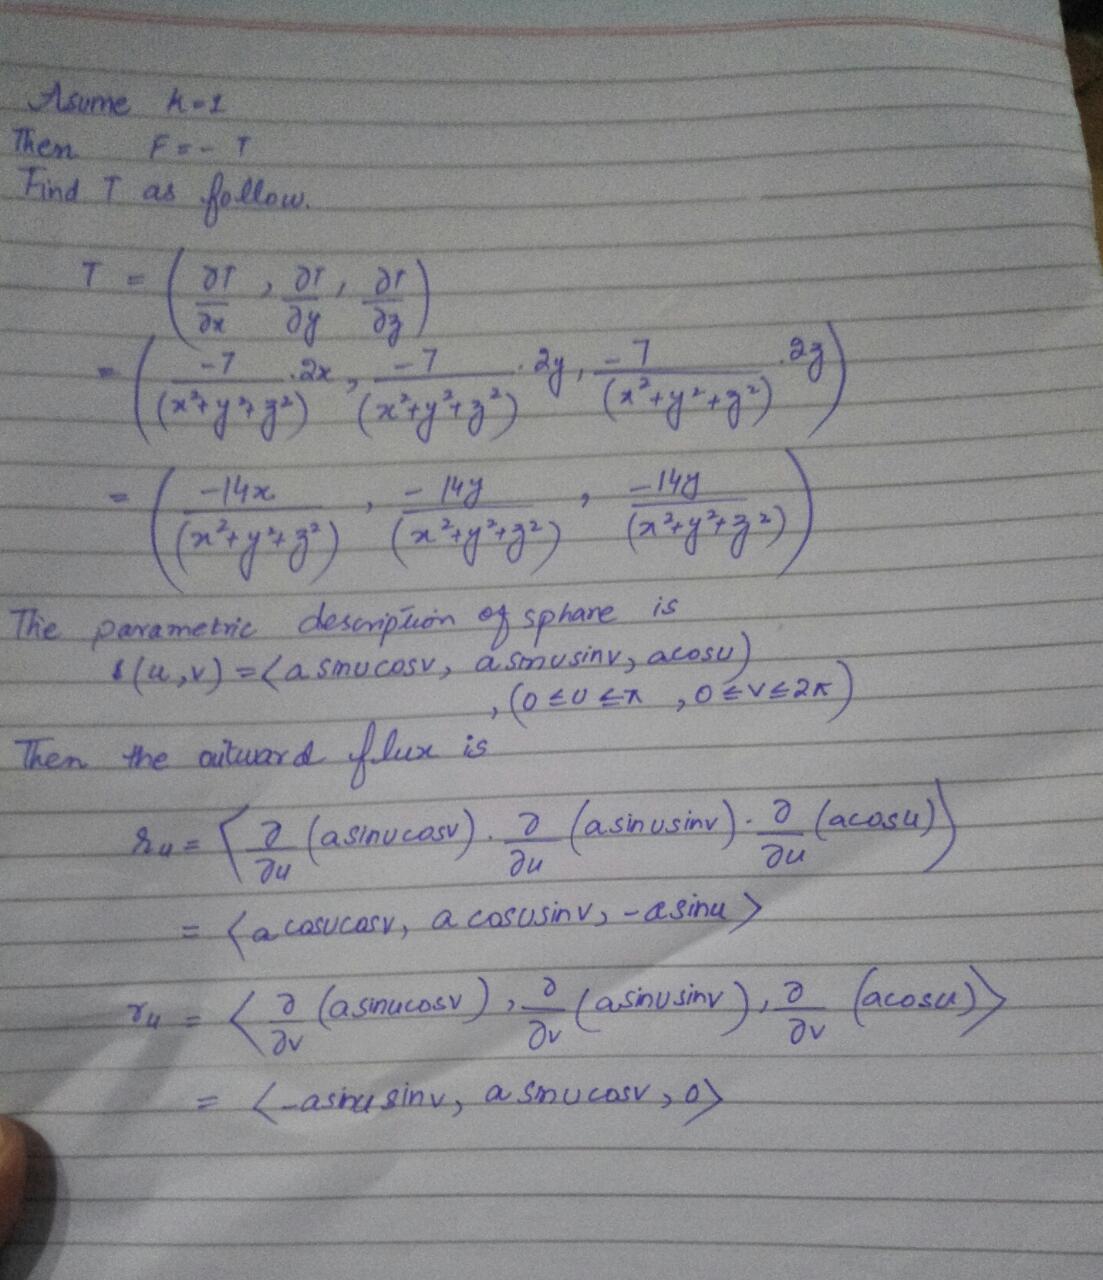 Asume k=1
Then F = - T
Find T as follow.
T = (∂T/∂x, ∂T/∂y, ∂T/∂z)
= (-7/(x²+y²+z²) .2x, -7/(x²+y²+z²) . 2y, -7/(x²+y²+z²) .2z)
= (-14x/(x²+y²+z²), -14y/(x²+y²+z²), -14y/(x²+y²+z²))
The parametric description of sphane is
r(u,v) = <a sinucosv, a sinusinv, acosu)
, (0≤u≤π, 0≤v≤2π)
Then the outward flux is
ru = <∂/∂u (asinucosv). ∂/∂u (asinusinv). ∂/∂u (acosu)>
= <a cosucosv, a cosusinv, -asinu>
ru = <∂/∂v (asinucosv), ∂/∂v (asinusinv), ∂/∂v (acosu)>
= <-asinusinv, a sinucosv, 0>